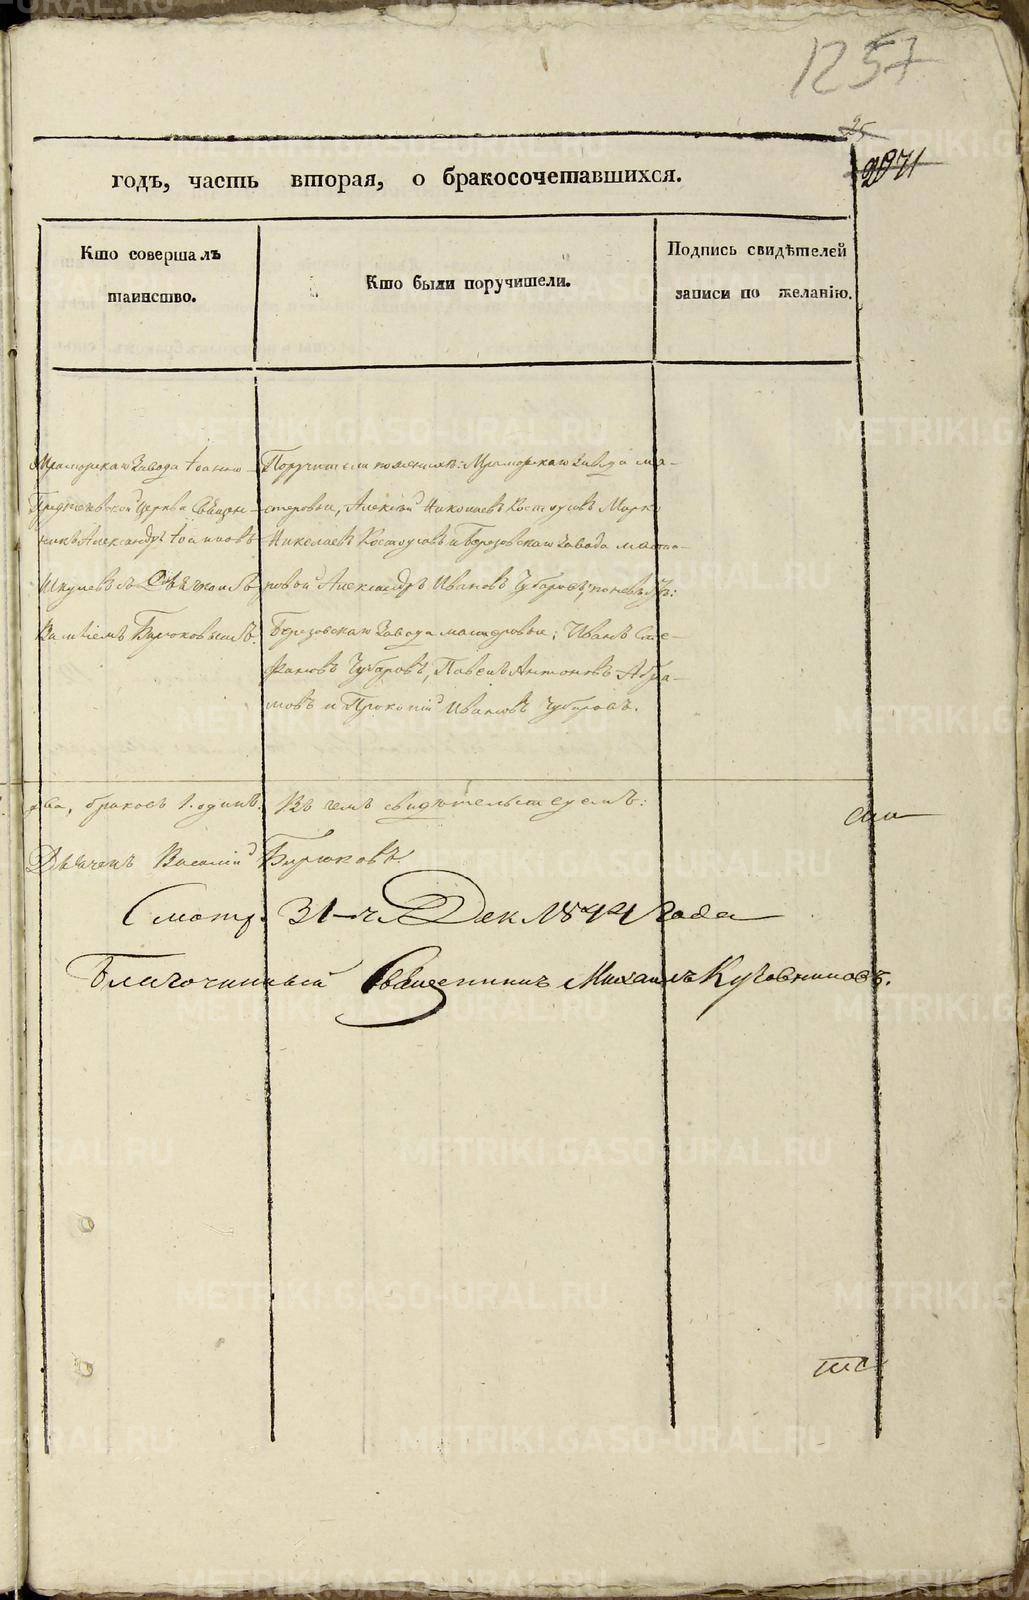 1257
25
2071
годъ, часть вторая, о бракосочетавшихся.
Кто совершалъ
таинство.
Кто были поручители.
Подпись свидѣтелей
записи по желанію.
Мраморскаго Завода Іоанно-
Предтечевской Церкви Священ-
никъ Александръ Іоанновъ
съ Дьячкомъ
Василіемъ Бирюковымъ.
Поручители по женихѣ: Мраморскаго Завода ма-
стеровые, Алексѣй Николаевъ Костоусовъ Марко
Николаевъ Костоусовъ и Березовскаго Завода масте-
ровой Александръ Ивановъ Чубаровъ, по невѣстѣ:
Березовскаго Завода мастеровые, Иванъ Сте-
фановъ Чубаровъ, Павелъ Антоновъ Абра-
мовъ и Прокопій Ивановъ Чубаровъ.
браковъ 1. одинъ. Въ чемъ свидѣтельствуемъ:
Дьячекъ Василій Бирюковъ
Смотр. 31-го Дек 1844 года
Благочинный Священникъ Михаилъ Кутовниковъ.
METRIKI.GASO-URAL.RU